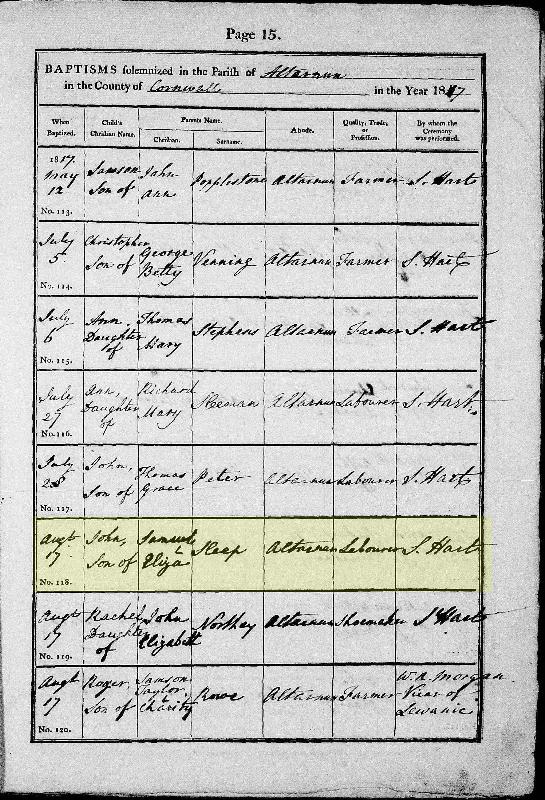 Page 15.
BAPTISMS solemnized in the Parish of Altarnun
in the County of Cornwall in the Year 1817
When Baptized. Child's Christian Name. Parents Name. Abode. Quality, Trade, or Profession. By whom the Ceremony was performed.
Christian. Surname.
1817. May 12 Samson Son of John Ann Popplestone Altarnun Farmer S. Hart
No. 113.
July 5 Christopher Son of George Betty Venning Altarnun Farmer S. Hart
No. 114.
July 6 Ann Daughter of Thomas Mary Stephens Altarnun Farmer S. Hart
No. 115.
July 27 Ann, Daughter of Richard Mary Altarnun Labourer S. Hart
No. 116.
July 28 John, Son of Thomas Grace Peter Altarnun Labourer S. Hart
No. 117.
Augt 17 John, Son of Samuel Eliza Sleep Altarnun Labourer S. Hart
No. 118.
Augt 17 Rachel Daughter of John Elizabeth Northey Altarnun Shoemaker S Hart
No. 119.
Augt 17 Roger, Son of Samson Taylor, Charity Rowe Altarnun Farmer W. A. Morgan Vicar of Lewanic
No. 120.